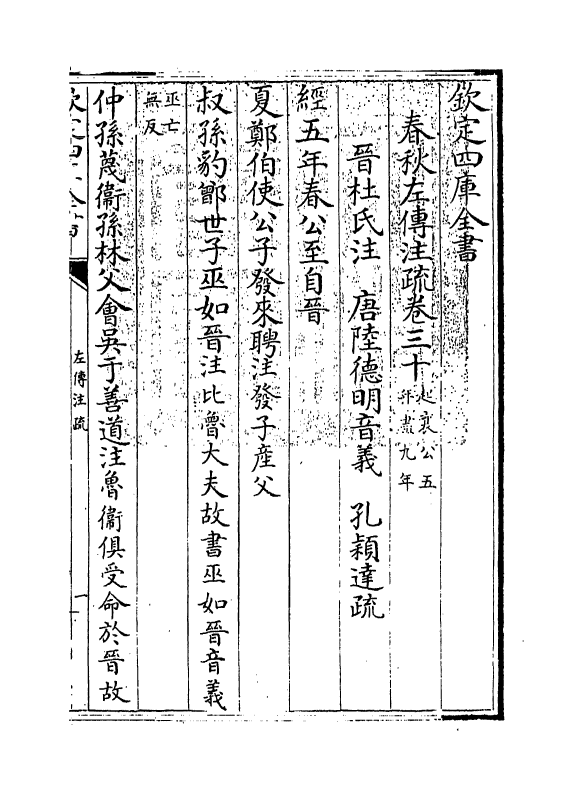 欽定四庫全書
春秋左傳注疏卷三十起襄公五年盡九年
晉杜氏注 唐陸德明音義 孔穎達疏
經五年春公至自晉
夏鄭伯使公子發來聘注發子產父
叔孫豹鄫世子巫如晉注比魯大夫故書巫如晉音義
巫亡無反
仲孫蔑衛孫林父會吳于善道注魯衛俱受命於晉故
左傳注疏
一